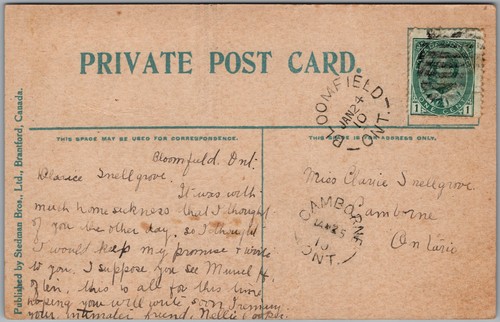 PRIVATE POST CARD.
THIS SPACE MAY BE USED FOR CORRESPONDENCE.
THIS SPACE IS FOR ADDRESS ONLY.
Published by Stedman Bros., Ltd., Brantford, Canada.
Bloomfield, Ont.
Clarice Snellgrove.
It was with
much home sickness that I thought
of you the other day, so I thought
I would keep my promise & write
to you. I suppose you see Muriel H.
often, this is all for this time
hoping you will write soon I remain
your intimate friend, Nellie
Miss Clarice Snellgrove.
Camborne
Ontario
BLOOMFIELD
JAN 24
10
ONT.
CAMBORNE
JAN 25
10
ONT.
1
1